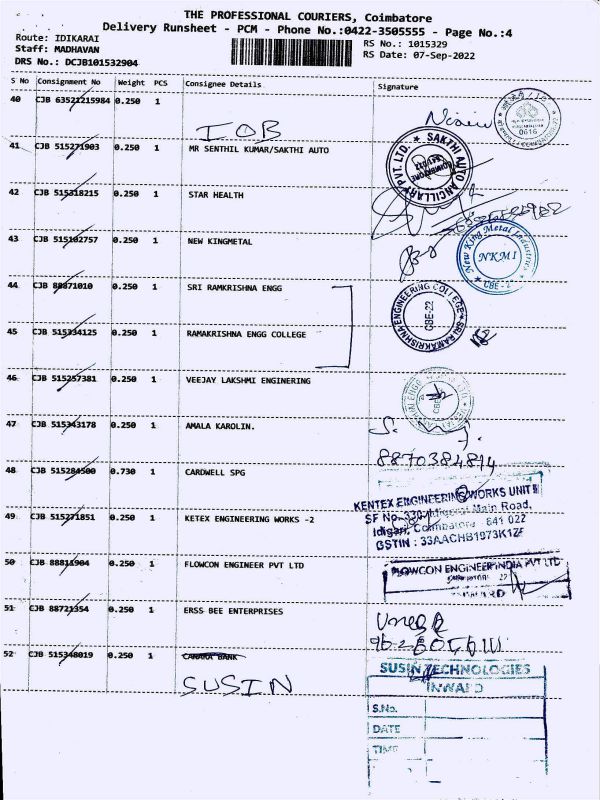 THE PROFESSIONAL COURIERS, Coimbatore
Delivery Runsheet - PCM - Phone No.:0422-3505555 - Page No.:4
Route: IDIKARAI
Staff: MADHAVAN
DRS No.: DCJB101532904
RS No.: 1015329
RS Date: 07-Sep-2022
S No Consignment No Weight PCS Consignee Details Signature
40 CJB 63521215984 0.250 1
IOB
0616
41 CJB 515271903 0.250 1 MR SENTHIL KUMAR/SAKTHI AUTO
SAKTHI AUTO ANCILLARY PVT. LTD.
42 CJB 515318215 0.250 1 STAR HEALTH
43 CJB 515102757 0.250 1 NEW KINGMETAL
New King Metal Industries
NKMI
CBE - 2
44 CJB 88871010 0.250 1 SRI RAMKRISHNA ENGG
SRI RAMAKRISHNA ENGINEERING COLLEGE
CBE-22
45 CJB 515334125 0.250 1 RAMAKRISHNA ENGG COLLEGE
46 CJB 515257381 0.250 1 VEEJAY LAKSHMI ENGINERING
47 CJB 515343178 0.250 1 AMALA KAROLIN.
8870384814
48 CJB 515284500 0.730 1 CARDWELL SPG
KENTEX ENGINEERING WORKS UNIT II
Main Road,
Idigarai, Coimbatore 641 022
GSTIN : 33AACHB1973K1ZF
49 CJB 515271851 0.250 1 KETEX ENGINEERING WORKS -2
50 CJB 88811904 0.250 1 FLOWCON ENGINEER PVT LTD
FLOWCON ENGINEER INDIA PVT LTD
51 CJB 88721354 0.250 1 ERSS BEE ENTERPRISES
52 CJB 515348019 0.250 1 CANARA BANK
SUSIN
SUSIN TECHNOLOGIES
INWARD
S.No.
DATE
TIME